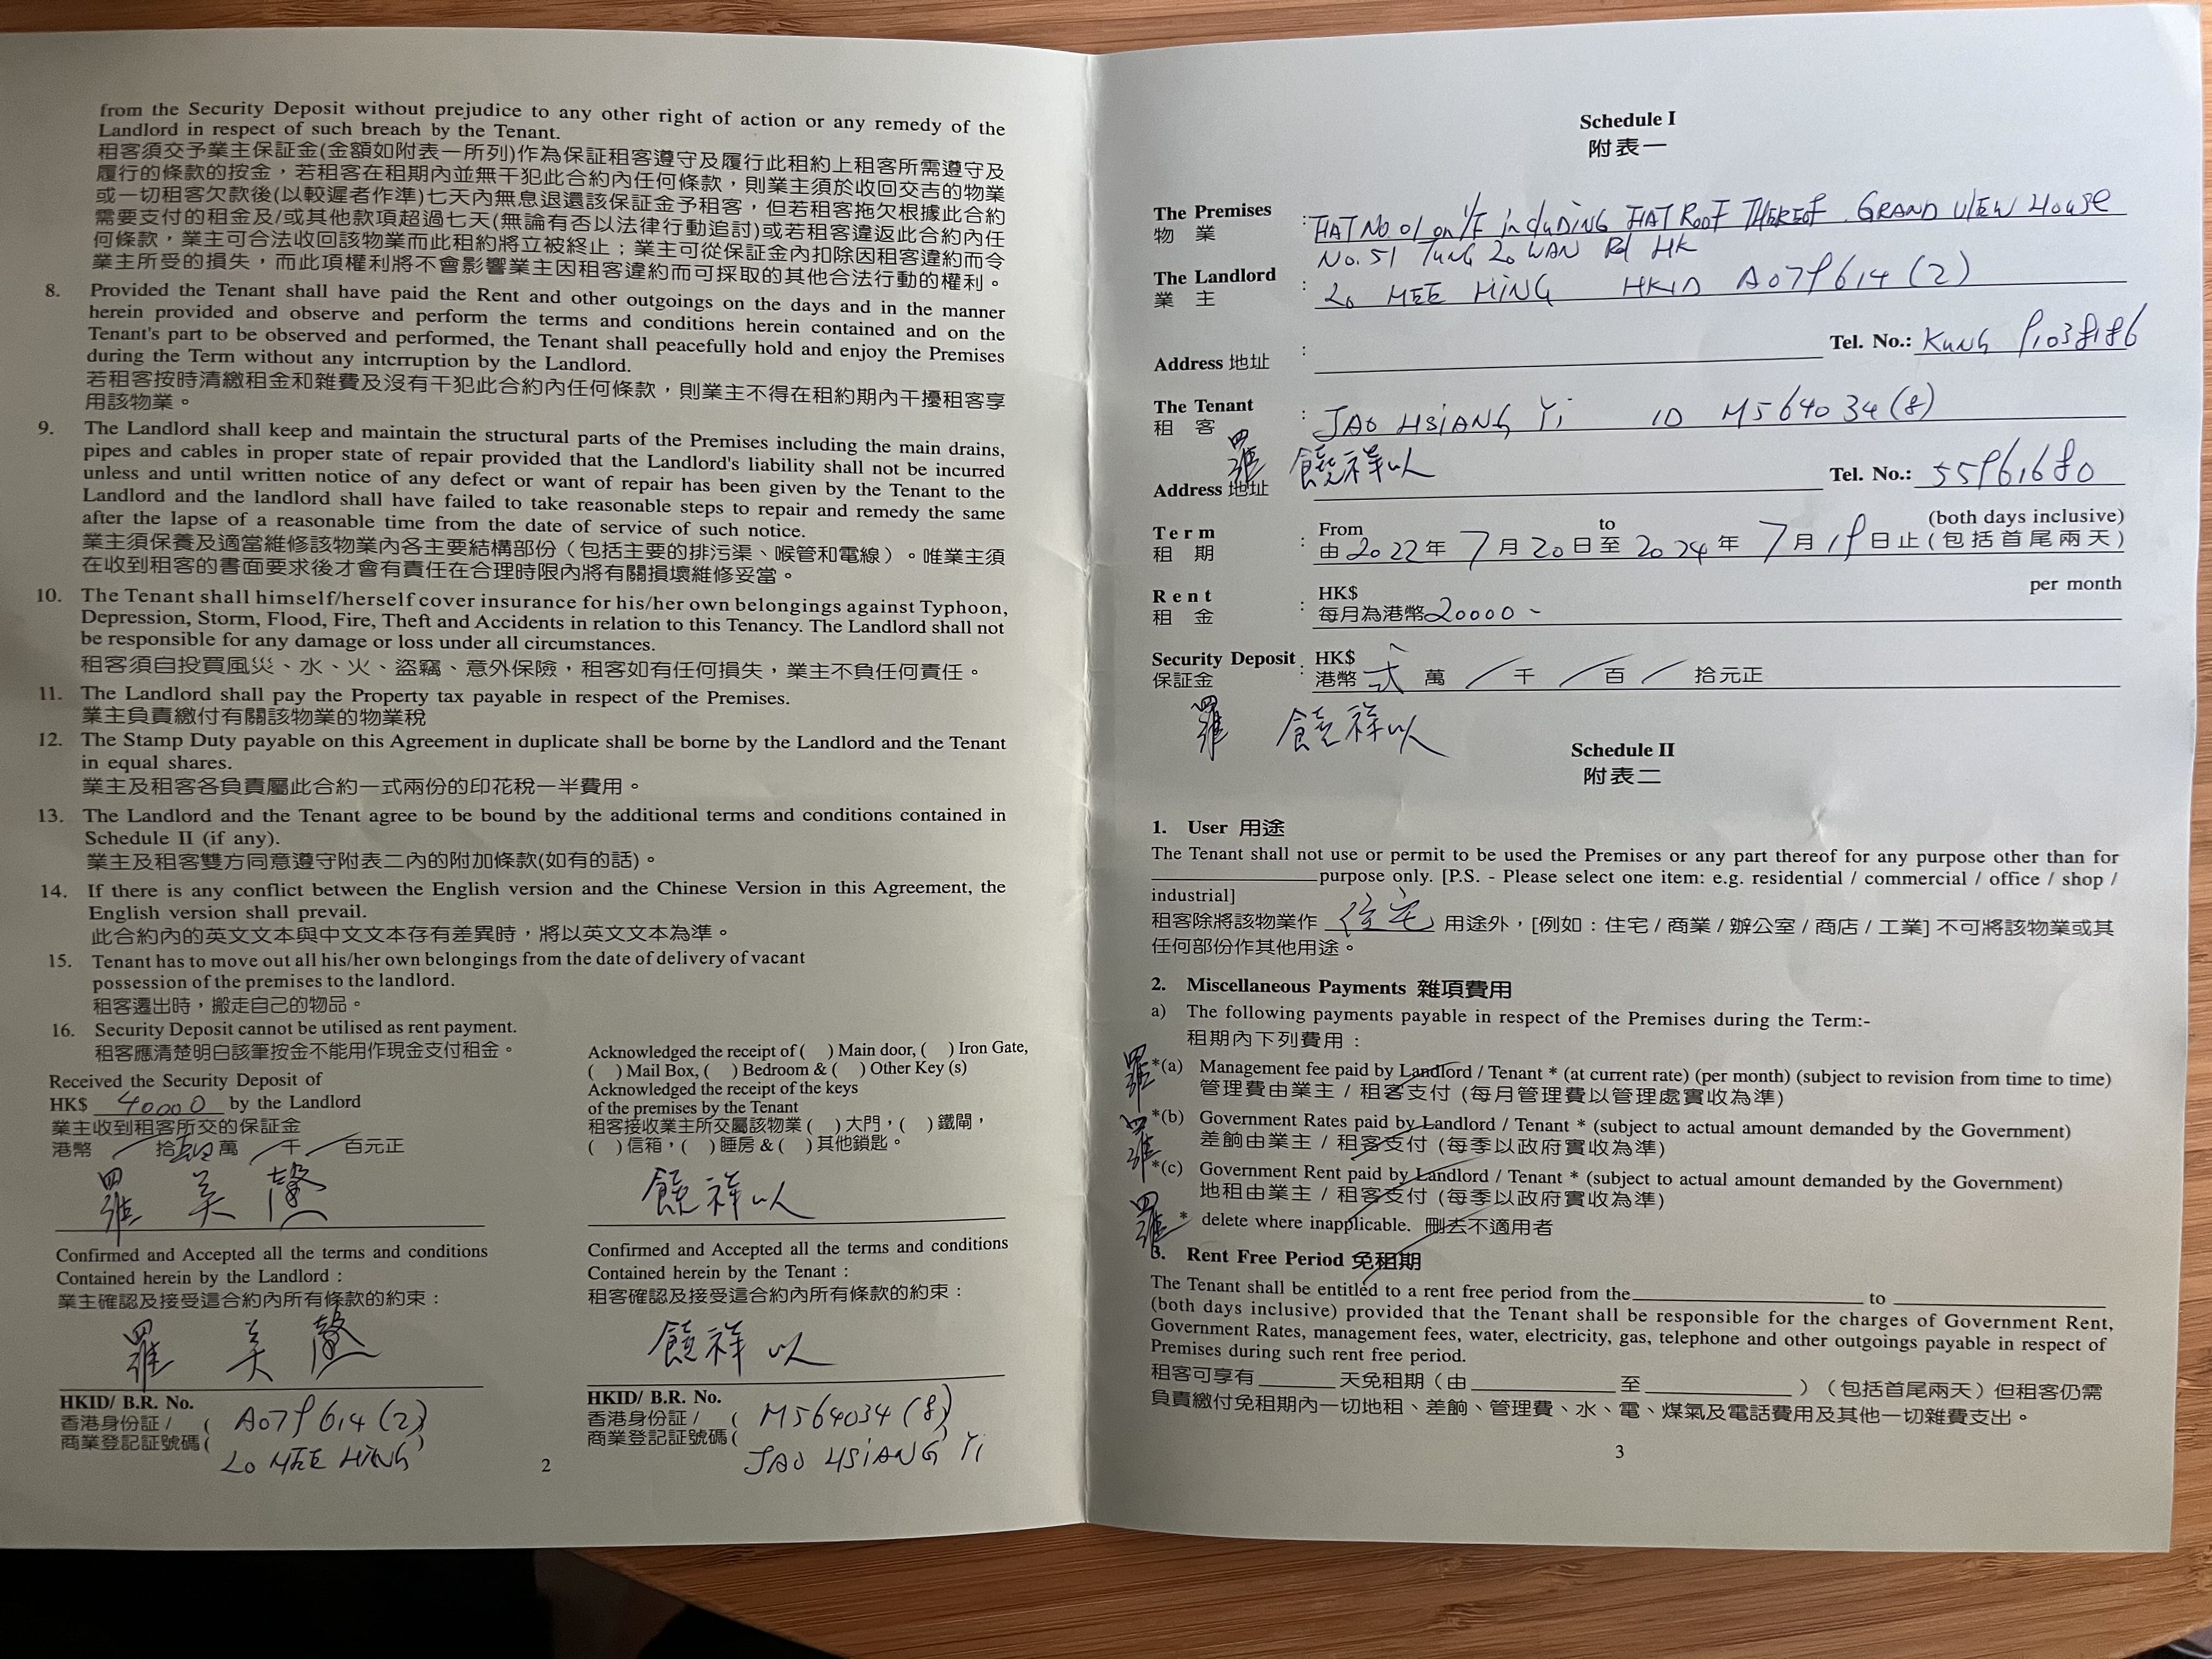 from the Security Deposit without prejudice to any other right of action or any remedy of the
Landlord in respect of such breach by the Tenant.
租客須交予業主保証金(金額如附表一所列)作為保証租客遵守及履行此租約上租客所需遵守及
履行的條款的按金，若租客在租期內並無干犯此合約內任何條款，則業主須於收回交吉的物業
或一切租客欠款後(以較遲者作準)七天內無息退還該保証金予租客，但若租客拖欠根據此合約
需要支付的租金及/或其他款項超過七天(無論有否以法律行動追討)或若租客違返此合約內任
何條款，業主可合法收回該物業而此租約將立被終止；業主可從保証金內扣除因租客違約而令
業主所受的損失，而此項權利將不會影響業主因租客違約而可採取的其他合法行動的權利。
8. Provided the Tenant shall have paid the Rent and other outgoings on the days and in the manner
herein provided and observe and perform the terms and conditions herein contained and on the
Tenant's part to be observed and performed, the Tenant shall peacefully hold and enjoy the Premises
during the Term without any interruption by the Landlord.
若租客按時清繳租金和雜費及沒有干犯此合約內任何條款，則業主不得在租約期內干擾租客享
用該物業。
9. The Landlord shall keep and maintain the structural parts of the Premises including the main drains,
pipes and cables in proper state of repair provided that the Landlord's liability shall not be incurred
unless and until written notice of any defect or want of repair has been given by the Tenant to the
Landlord and the landlord shall have failed to take reasonable steps to repair and remedy the same
after the lapse of a reasonable time from the date of service of such notice.
業主須保養及適當維修該物業內各主要結構部份（包括主要的排污渠、喉管和電線）。唯業主須
在收到租客的書面要求後才會有責任在合理時限內將有關損壞維修妥當。
10. The Tenant shall himself/herself cover insurance for his/her own belongings against Typhoon,
Depression, Storm, Flood, Fire, Theft and Accidents in relation to this Tenancy. The Landlord shall not
be responsible for any damage or loss under all circumstances.
租客須自投買風災、水、火、盜竊、意外保險，租客如有任何損失，業主不負任何責任。
11. The Landlord shall pay the Property tax payable in respect of the Premises.
業主負責繳付有關該物業的物業稅
12. The Stamp Duty payable on this Agreement in duplicate shall be borne by the Landlord and the Tenant
in equal shares.
業主及租客各負責屬此合約一式兩份的印花稅一半費用。
13. The Landlord and the Tenant agree to be bound by the additional terms and conditions contained in
Schedule II (if any).
業主及租客雙方同意遵守附表二內的附加條款(如有的話)。
14. If there is any conflict between the English version and the Chinese Version in this Agreement, the
English version shall prevail.
此合約內的英文文本與中文文本存有差異時，將以英文文本為準。
15. Tenant has to move out all his/her own belongings from the date of delivery of vacant
possession of the premises to the landlord.
租客遷出時，搬走自己的物品。
16. Security Deposit cannot be utilised as rent payment.
租客應清楚明白該筆按金不能用作現金支付租金。
Received the Security Deposit of
HK$ 40000 by the Landlord
業主收到租客所交的保証金
港幣 拾 肆 萬 千 百元正
羅 美 馨
Confirmed and Accepted all the terms and conditions
Contained herein by the Landlord :
業主確認及接受這合約內所有條款的約束：
羅 美 馨
HKID/ B.R. No.
香港身份証 / ( A079614 (2)
商業登記証號碼( LO MEE HING )
Acknowledged the receipt of ( ) Main door, ( ) Iron Gate,
( ) Mail Box, ( ) Bedroom & ( ) Other Key (s)
Acknowledged the receipt of the keys
of the premises by the Tenant
租客接收業主所交屬該物業 ( ) 大門，( ) 鐵閘，
( ) 信箱，( ) 睡房 & ( ) 其他鎖匙。
饒祥以
Confirmed and Accepted all the terms and conditions
Contained herein by the Tenant :
租客確認及接受這合約內所有條款的約束：
饒祥以
HKID/ B.R. No.
香港身份証 / ( M564034 (8)
商業登記証號碼( JAO HSIANG YI )
2
Schedule I
附表一
The Premises
物 業 : FLAT No. 01 on 1/F including FLAT ROOF THEREOF. GRAND VIEW HOUSE
No. 51 TUNG LO WAN Rd HK
The Landlord
業 主 : LO MEE HING HKID A079614 (2)
Address 地址 : Tel. No.: KUNG 91038186
The Tenant
租 客 : JAO HSIANG YI ID M564034 (8)
羅 饒祥以
Address 地址 Tel. No.: 55961680
Term From to (both days inclusive)
租 期 : 由 2022 年 7 月 20 日至 2024 年 7 月 19 日止 (包括首尾兩天)
Rent HK$ per month
租 金 : 每月為港幣 20000 -
Security Deposit HK$
保証金 : 港幣 弍 萬 千 百 拾元正
羅 饒祥以
Schedule II
附表二
1. User 用途
The Tenant shall not use or permit to be used the Premises or any part thereof for any purpose other than for
purpose only. [P.S. - Please select one item: e.g. residential / commercial / office / shop /
industrial]
租客除將該物業作 住宅 用途外，[例如：住宅 / 商業 / 辦公室 / 商店 / 工業] 不可將該物業或其
任何部份作其他用途。
2. Miscellaneous Payments 雜項費用
a) The following payments payable in respect of the Premises during the Term:-
租期內下列費用：
羅 *(a) Management fee paid by Landlord / Tenant * (at current rate) (per month) (subject to revision from time to time)
管理費由業主 / 租客支付 (每月管理費以管理處實收為準)
羅 *(b) Government Rates paid by Landlord / Tenant * (subject to actual amount demanded by the Government)
差餉由業主 / 租客支付 (每季以政府實收為準)
*(c) Government Rent paid by Landlord / Tenant * (subject to actual amount demanded by the Government)
地租由業主 / 租客支付 (每季以政府實收為準)
羅 * delete where inapplicable. 刪去不適用者
3. Rent Free Period 免租期
The Tenant shall be entitled to a rent free period from the to
(both days inclusive) provided that the Tenant shall be responsible for the charges of Government Rent,
Government Rates, management fees, water, electricity, gas, telephone and other outgoings payable in respect of
Premises during such rent free period.
租客可享有 天免租期（由 至 ）（包括首尾兩天）但租客仍需
負責繳付免租期內一切地租、差餉、管理費、水、電、煤氣及電話費用及其他一切雜費支出。
3